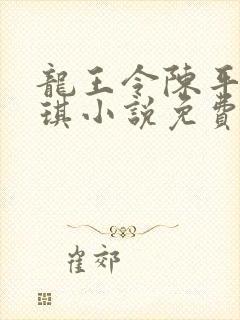 龍王令陳平
琪小說免費
崔郊